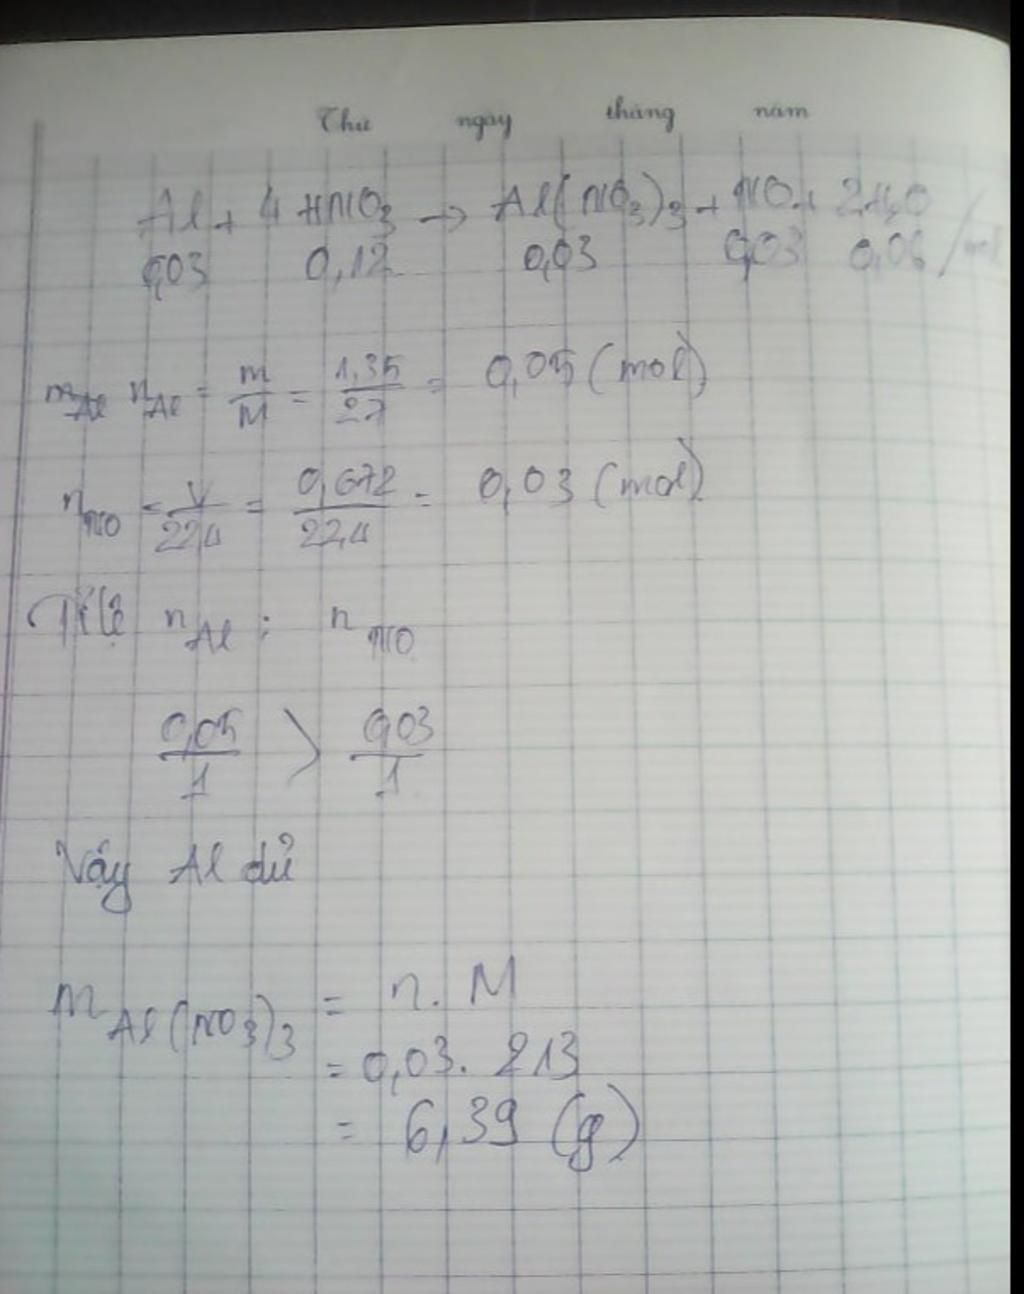 Thứ ngày tháng năm
Al + 4 HNO3 → Al(NO3)3 + NO + 2H2O
0,03 0,12 0,03 0,03 0,06 /mol
mAl nAl = m/M = 1,35/27 = 0,05 (mol)
nNO = V/22,4 = 0,672/22,4 = 0,03 (mol)
Tỉ lệ nAl : nNO
0,05/1 > 0,03/1
Vậy Al dư
mAl(NO3)3 = n. M
= 0,03. 213
= 6,39 (g)